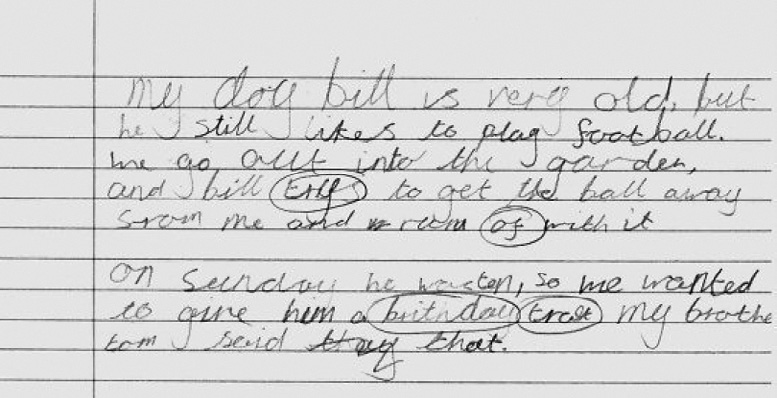 my dog bill is very old, but
he still likes to play football.
we go out into the garden,
and bill trys to get the ball away
from me and run of with it
on sunday he was ten, so we wanted
to give him a brithday trat my brothe
tom said that.